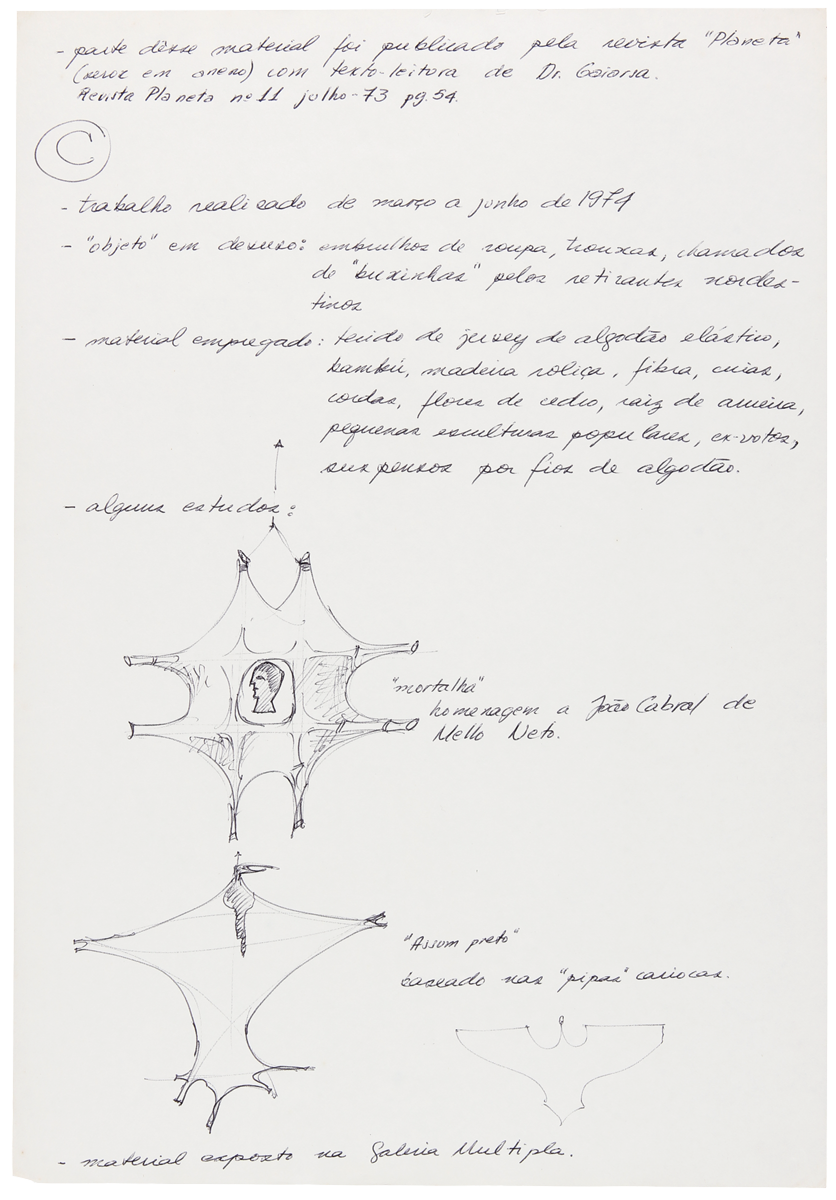 - parte dêsse material foi publicado pela revista "Planeta"
(xerox em anexo) com texto-leitora de Dr. Gaiarsa.
Revista Planeta nº 11 julho-73 pg. 54.
C
- trabalho realizado de março a junho de 1974
- "objeto" em desuso: embrulhos de roupa, trouxas, chamados
de "buxinhas" pelos retirantes nordes-
tinos
- material empregado: tecido de jersey de algodão elástico,
bambú, madeira roliça, fibra, cuias,
cordas, flores de cedro, raiz de
pequenas esculturas populares, ex-votos,
suspensos por fios de algodão.
- alguns estudos:
"mortalha"
homenagem a João Cabral de
Mello Neto.
"Assum preto"
baseado nas "pipas" cariocas.
- material exposto na Galeria Multipla.